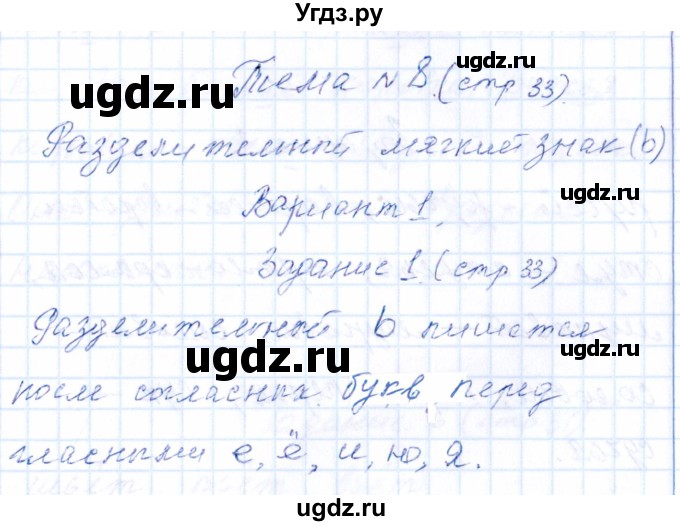 Угдз.ру
ugdz.ru
ugdz.ru
Тема № 8. (стр 33).
Разделительный мягкий знак (ь)
Вариант 1.
ugdz.ru
ugdz.ru
Задание 1. (стр 33)
Разделительный ь пишется
ugdz.ru
ugdz.ru
после согласных букв перед
гласными е, ё, и, ю, я.
ugdz.ru
ugdz.ru
ugdz.ru